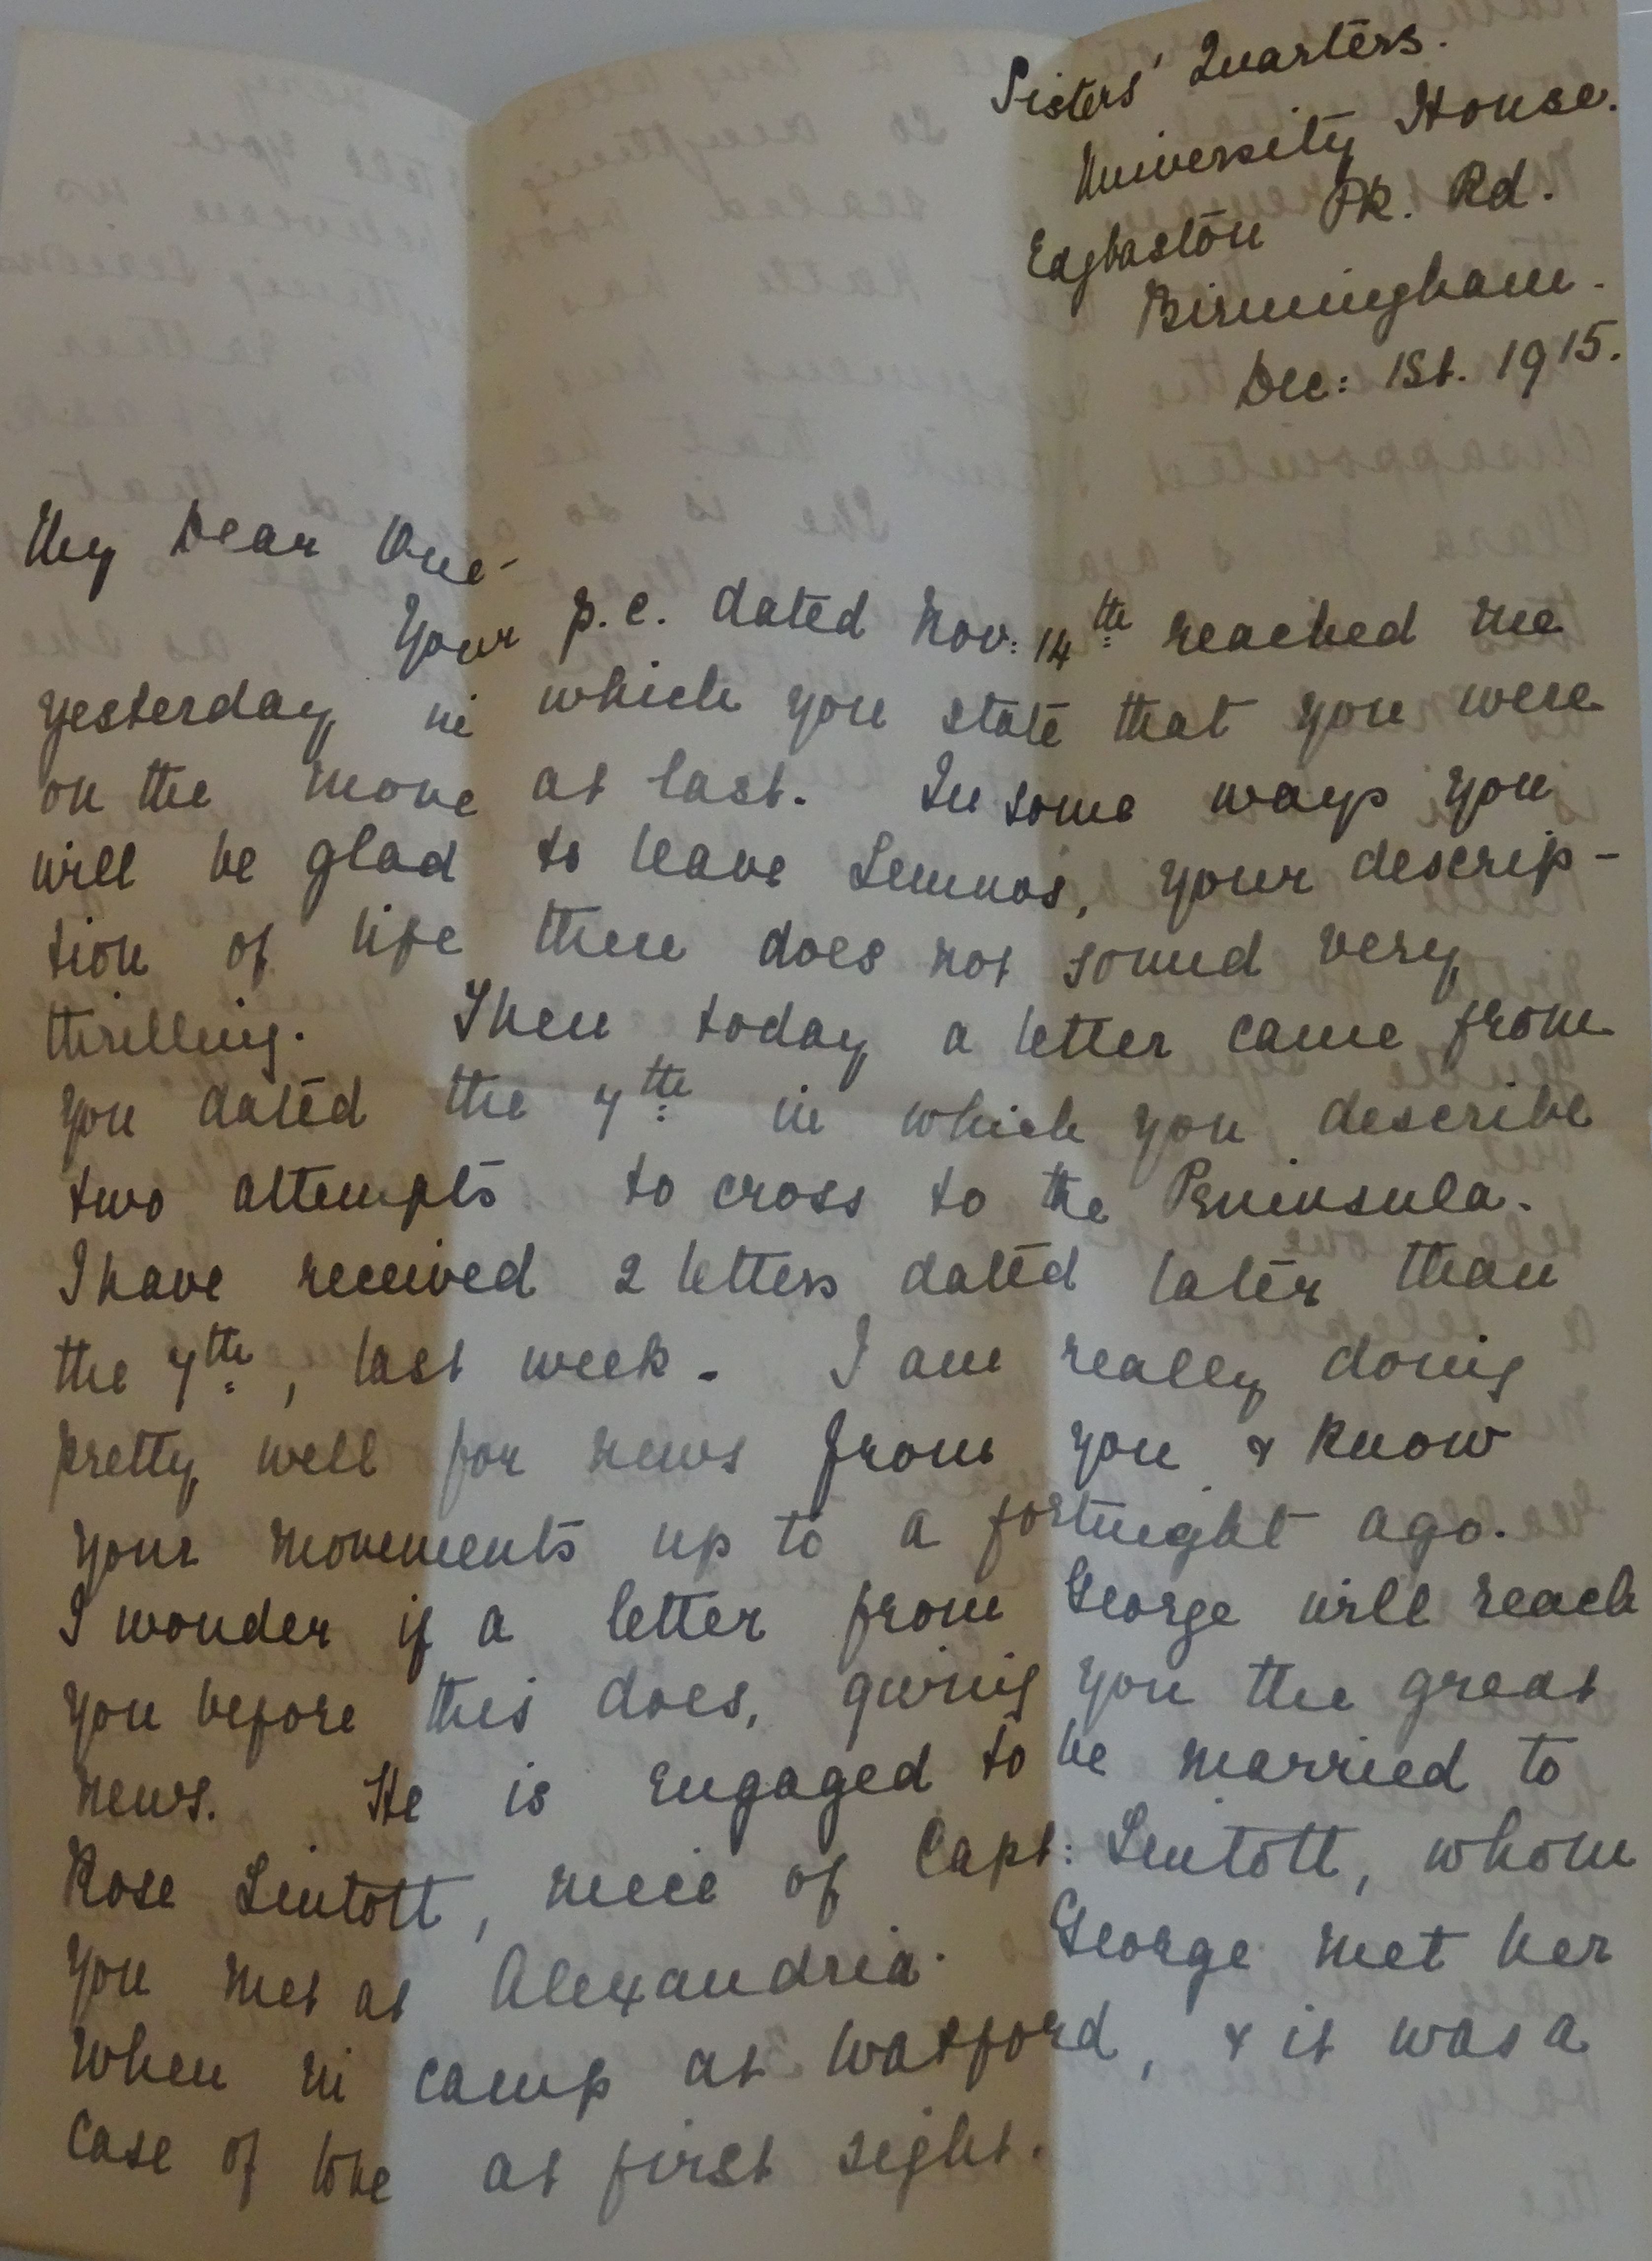 Sisters' Quarters.
University House.
Edgbaston Pk. Rd.
Birmingham.
Dec: 1st. 1915.
My Dear One-
Your p.c. dated Nov: 14th reached me
yesterday in which you state that you were
on the move at last. In some ways you
will be glad to leave Lemnos, your descrip-
tion of life there does not sound very
thrilling. Then today a letter came from
you dated the 7th in which you describe
two attempts to cross to the Peninsula.
I have received 2 letters dated later than
the 7th, last week. I am really doing
pretty well for news from you & know
your movements up to a fortnight ago.
I wonder if a letter from George will reach
you before this does, giving you the great
news. He is engaged to be married to
Rose Lintott, niece of Capt: Lintott, whom
you met at Alexandria. George met her
when in camp at Watford, & it was a
case of love at first sight.